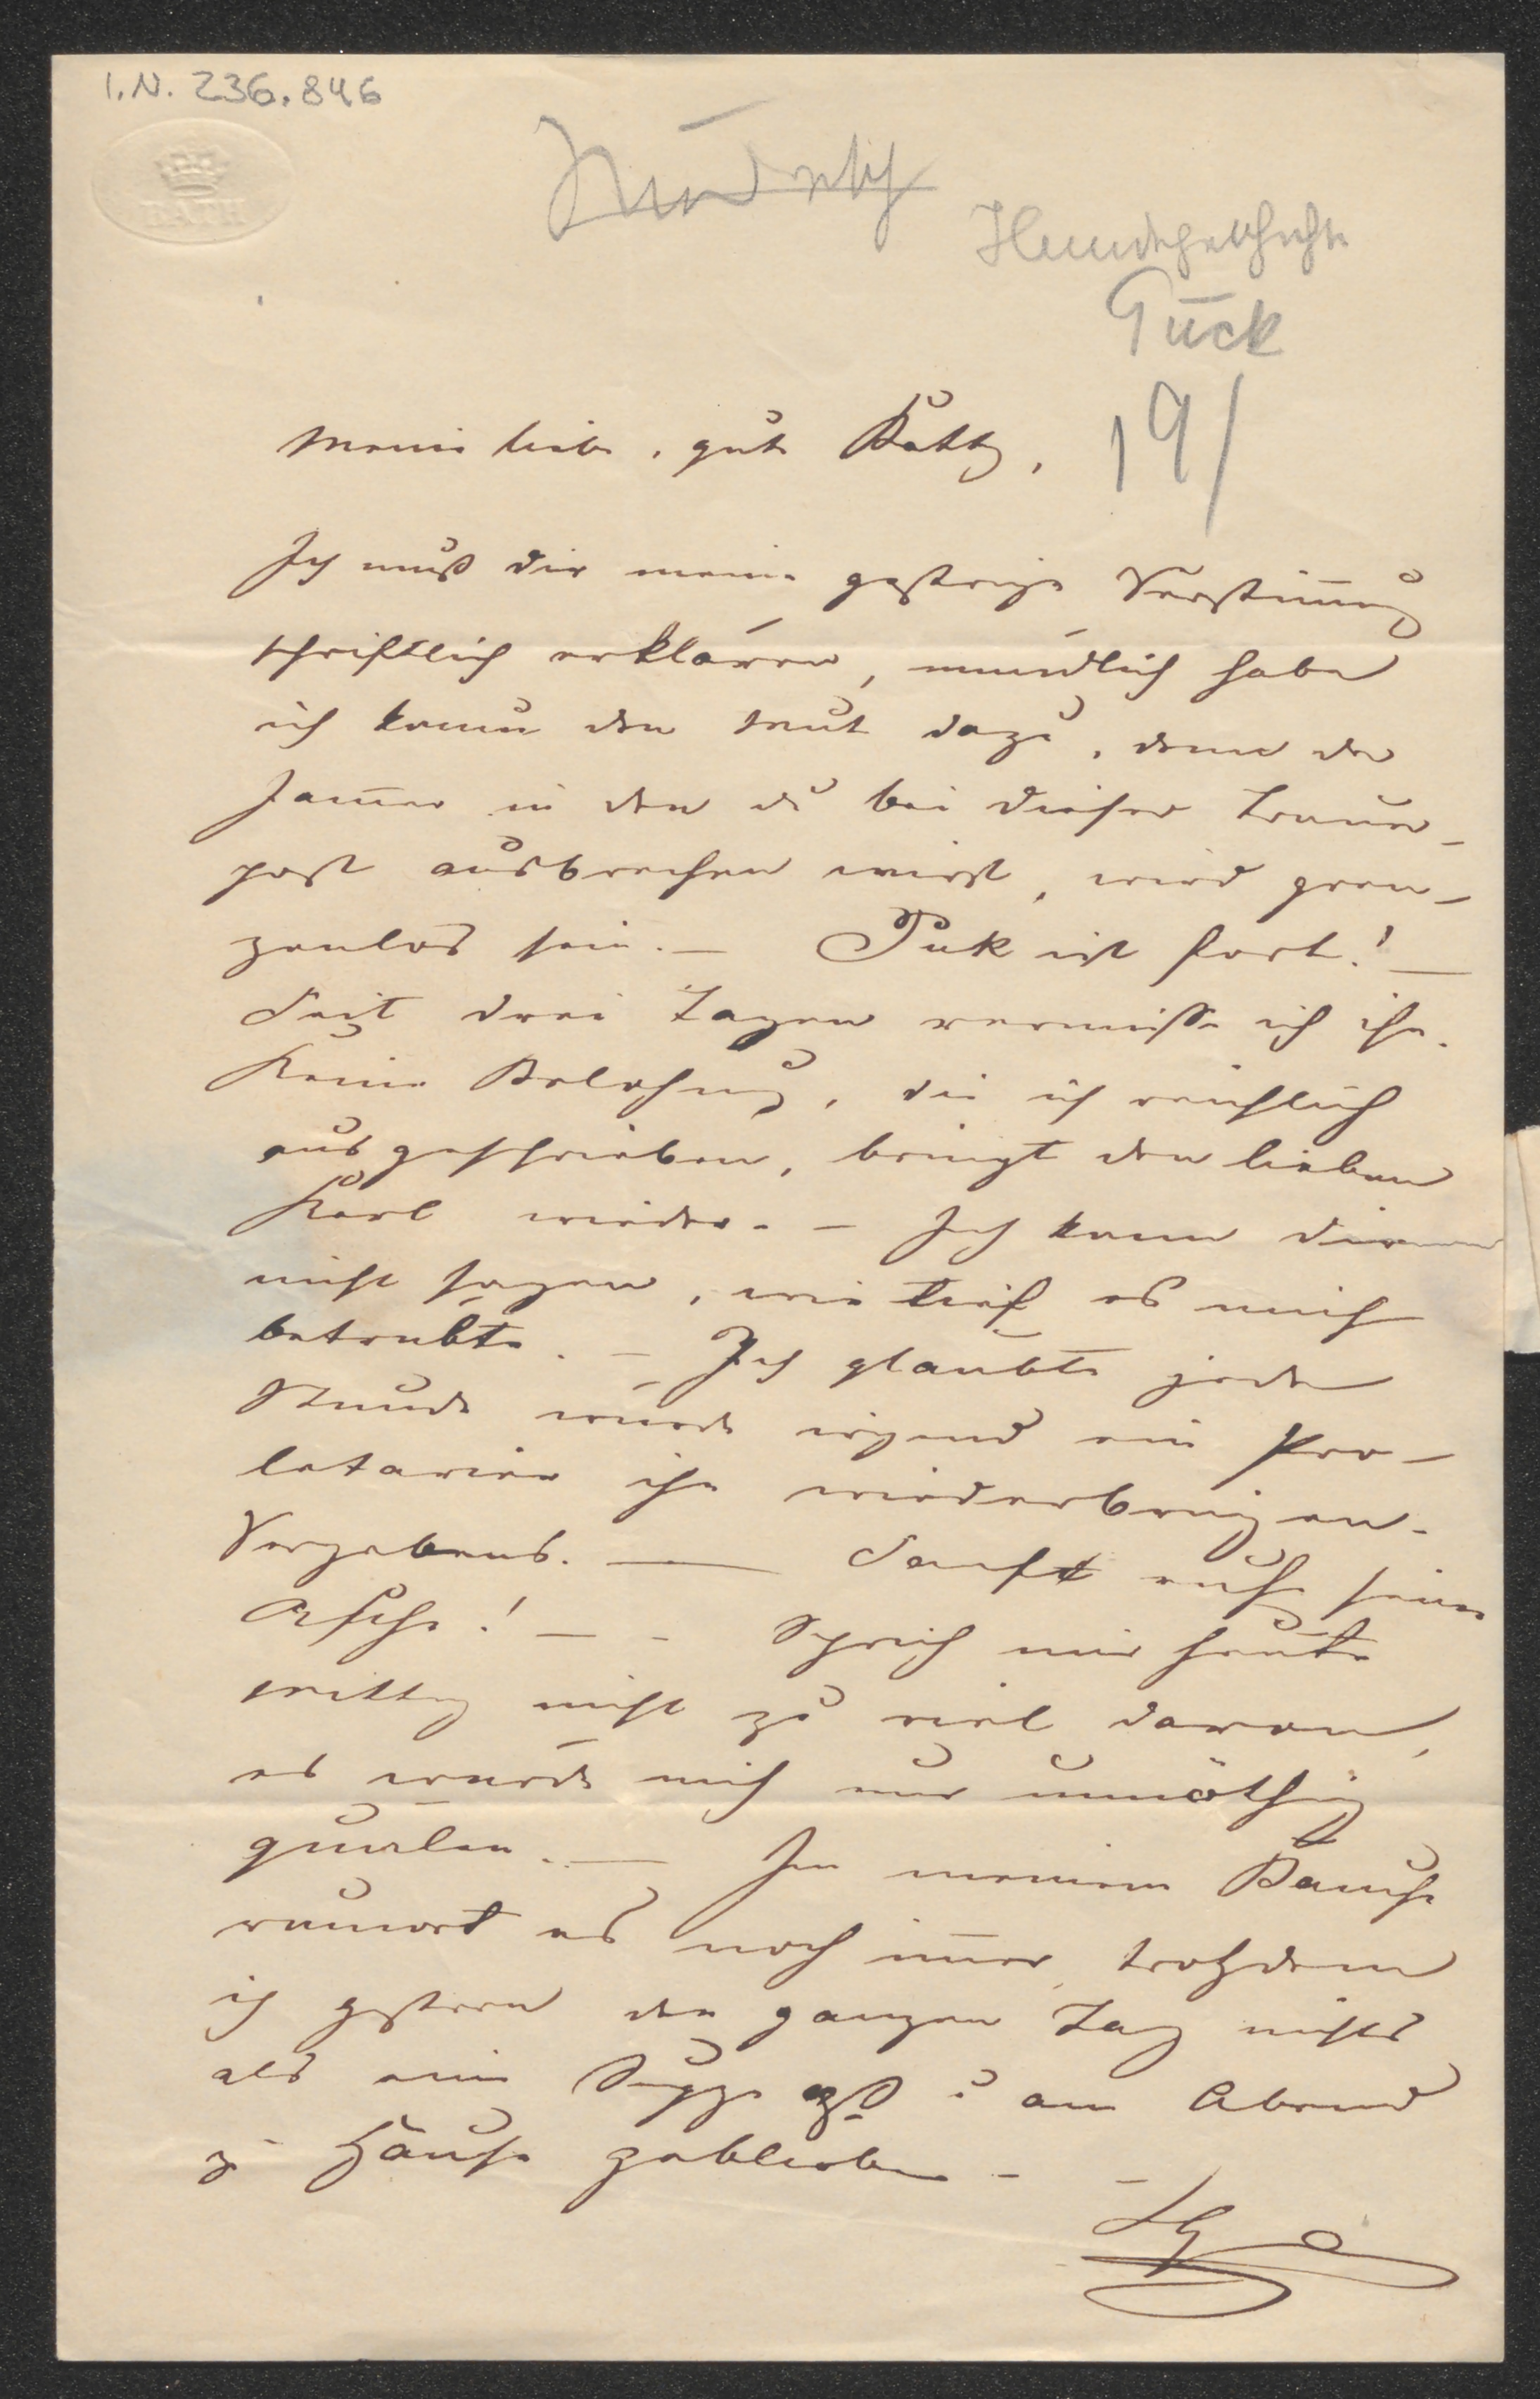 I.N. 236.846
BATH
Hundegeschichte
Puck
191
Meine liebe, gute Betty,
Ich muß dir meine gestrige Verstim̄ung
schriftlich erklären, mündlich habe
ich kaum den Mut dazu, denn der
Jam̄er in den du bei dieser Trauer-
post ausbrechen wirst, wird gren-
zenlos sein. — Puk ist fort! —
Seit drei Tagen vermisse ich ihn.
Keine Belohnung, die ich reichlich
ausgeschrieben, bringt den lieben
Kerl wieder. – Ich kann dir
nicht sagen, wie tief es mich
betrübte. – Ich glaubte jede
Stunde würde irgend ein Pro-
letarier ihn wiederbringen.
Vergebens. — Sanft ruhe seine
Asche! – – Sprich mir heute
Mittag nicht zu viel davon,
es würde mich nur unnöthig
quälen. — In meinem Bauche
rumort es noch im̄er, trotzdem
ich gestern den ganzen Tag nichts
als eine Suppe aß u am Abend
zu Hause geblieben. –